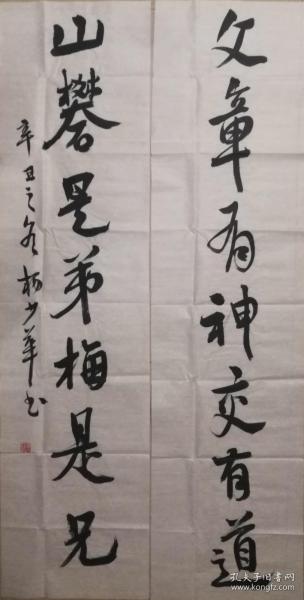 文章有神交有道
山礬是弟梅是兄
辛丑之冬 杨少華书
孔夫子旧书网